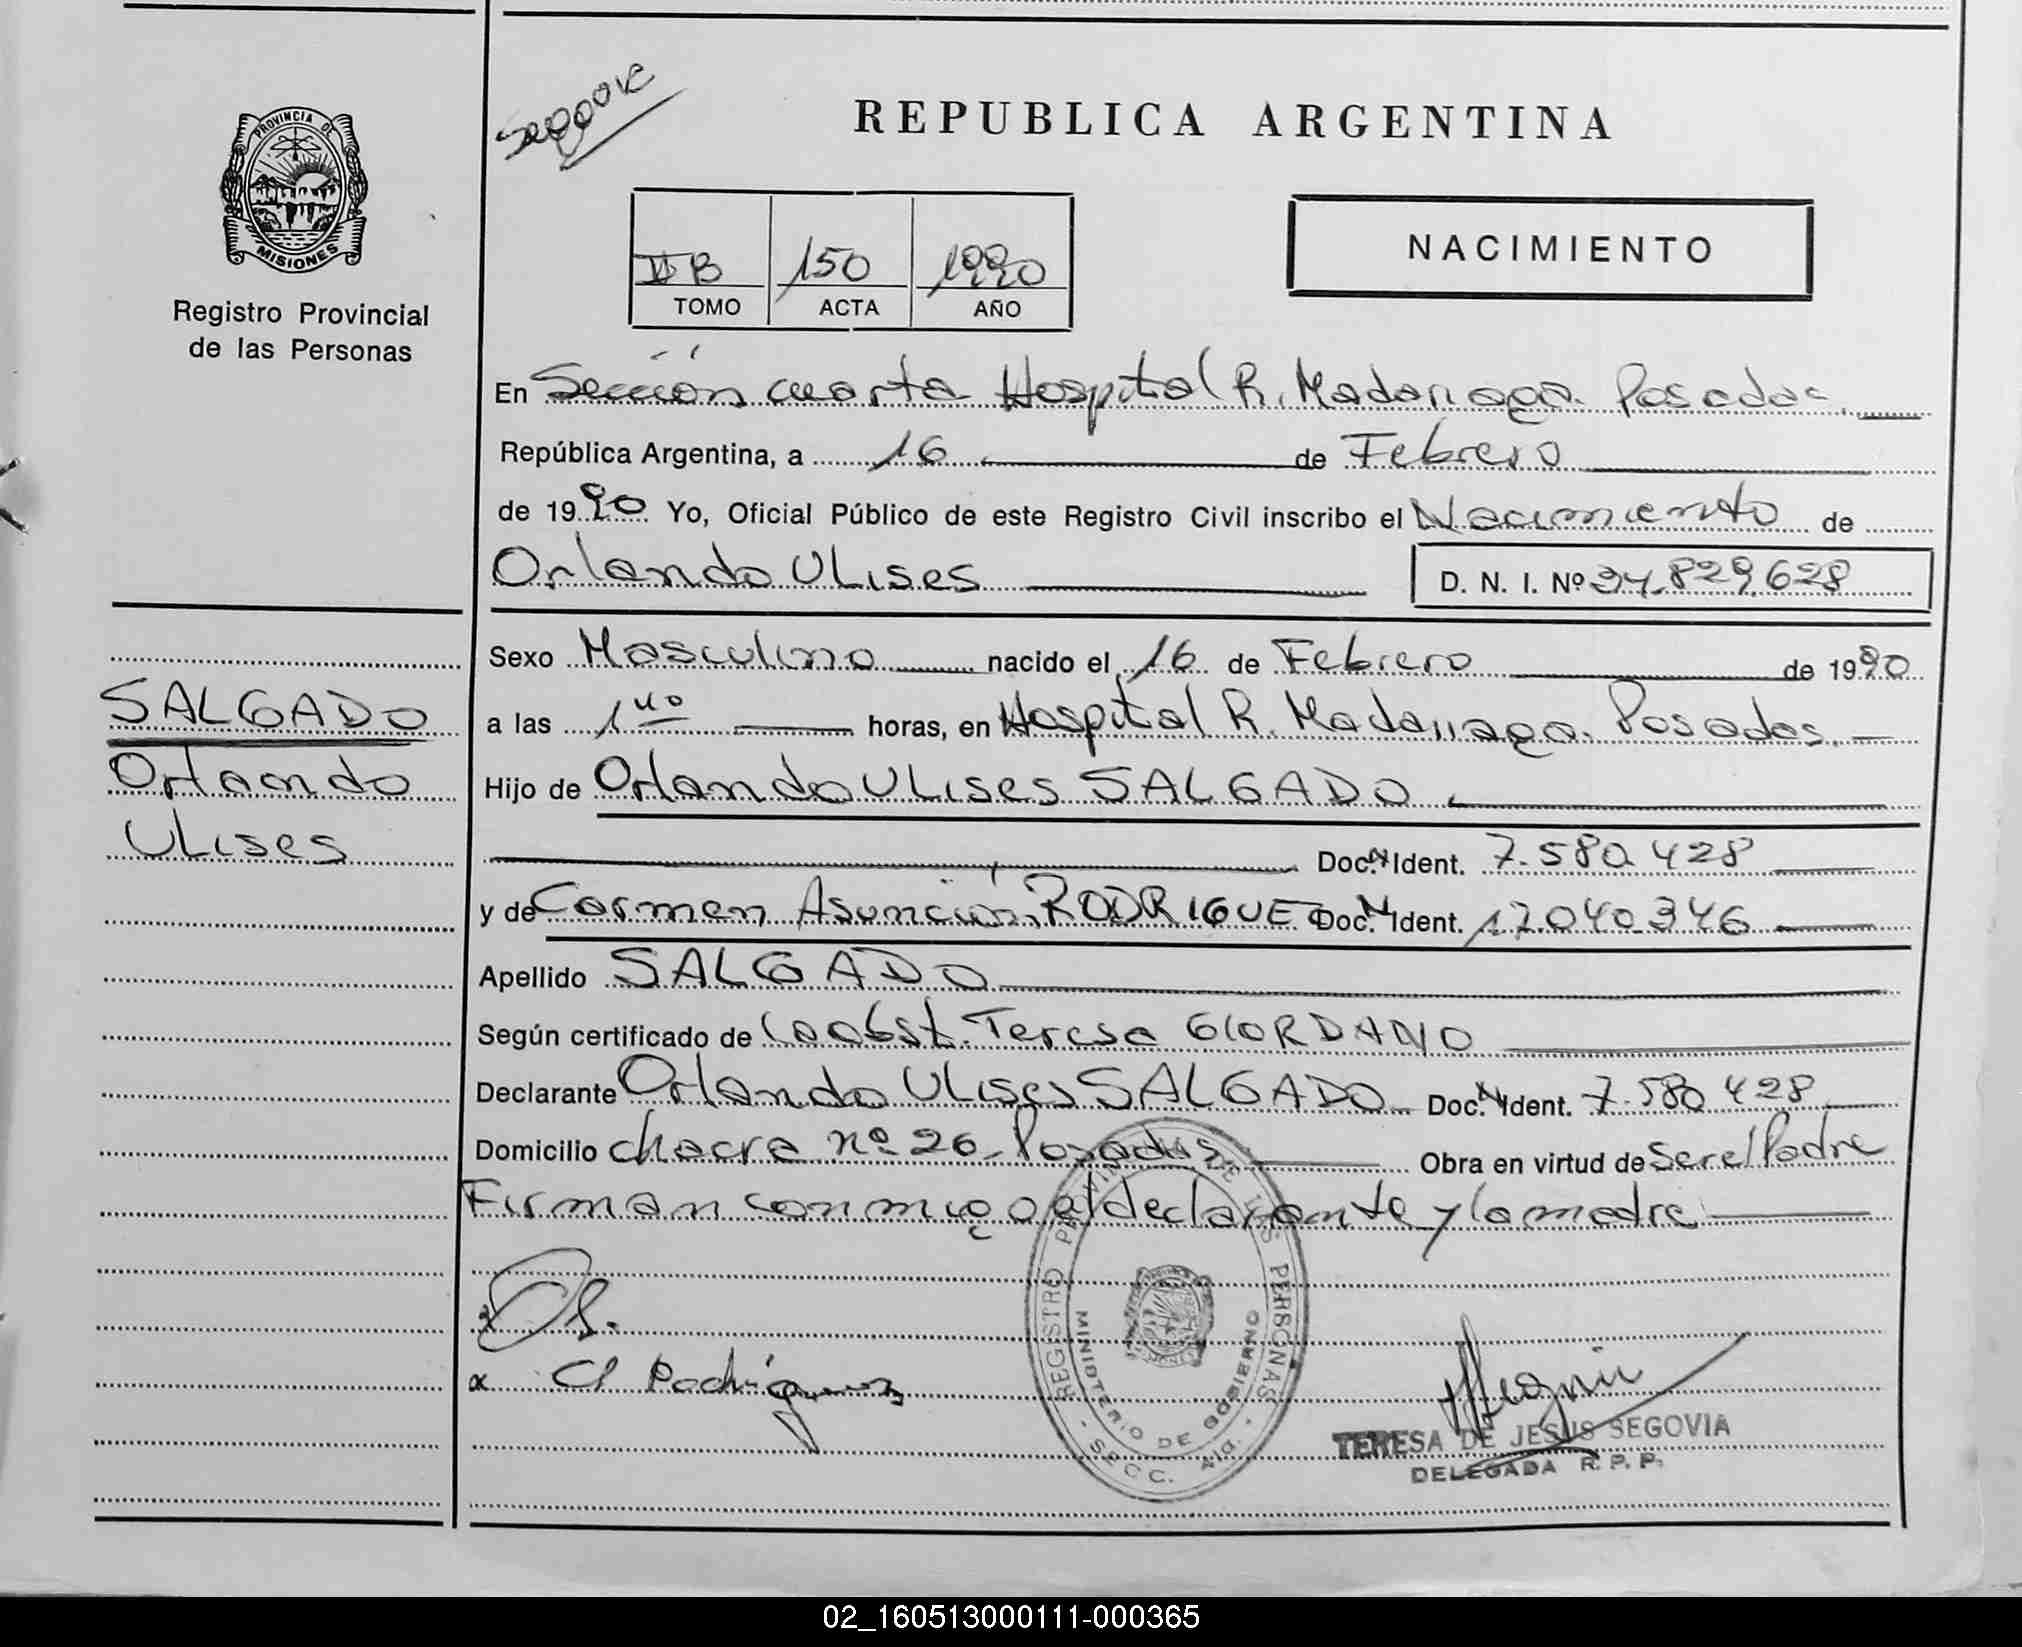 REPUBLICA ARGENTINA
PROVINCIA DE
MISIONES
Registro Provincial
de las Personas
150 1990
TOMO ACTA AÑO
NACIMIENTO
En Sección cuarta Hospital R. Madariaga. Posadas.
República Argentina, a 16 de Febrero
de 1990 Yo, Oficial Público de este Registro Civil inscribo el Nacimiento de
Orlando Ulises D. N. I. Nº 34.829.628
Sexo Masculino nacido el 16 de Febrero de 1990
a las 1 40 horas, en Hospital R. Madariaga. Posadas.
Hijo de Orlando Ulises SALGADO
Doc. N Ident. 7.580.428
y de Carmen Asunción RODRIGUE Doc. N Ident. 17.040.346
Apellido SALGADO
Según certificado de la obst. Teresa GIORDANO
Declarante Orlando Ulises SALGADO Doc. N Ident. 7.580 428
Domicilio chacra nº 26 Posadas Obra en virtud de ser el Padre
Firman conmigo el declarante y la madre
SALGADO
Orlando
Ulises
C Rodriguez
REGISTRO PROVINCIAL DE LAS PERSONAS
MINISTERIO DE GOBIERNO
TERESA DE JESUS SEGOVIA
DELEGADA R. P. P.
02_160513000111-000365